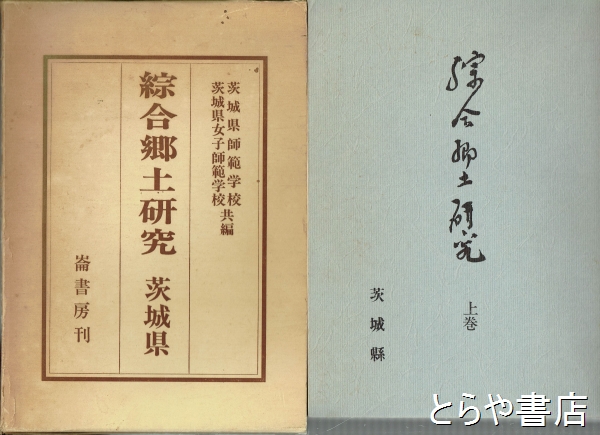 茨城県師範学校
茨城県女子師範学校
共編
綜合郷土研究 茨城県
崙書房刊
綜合郷土研究
上巻
茨城縣
とらや書店